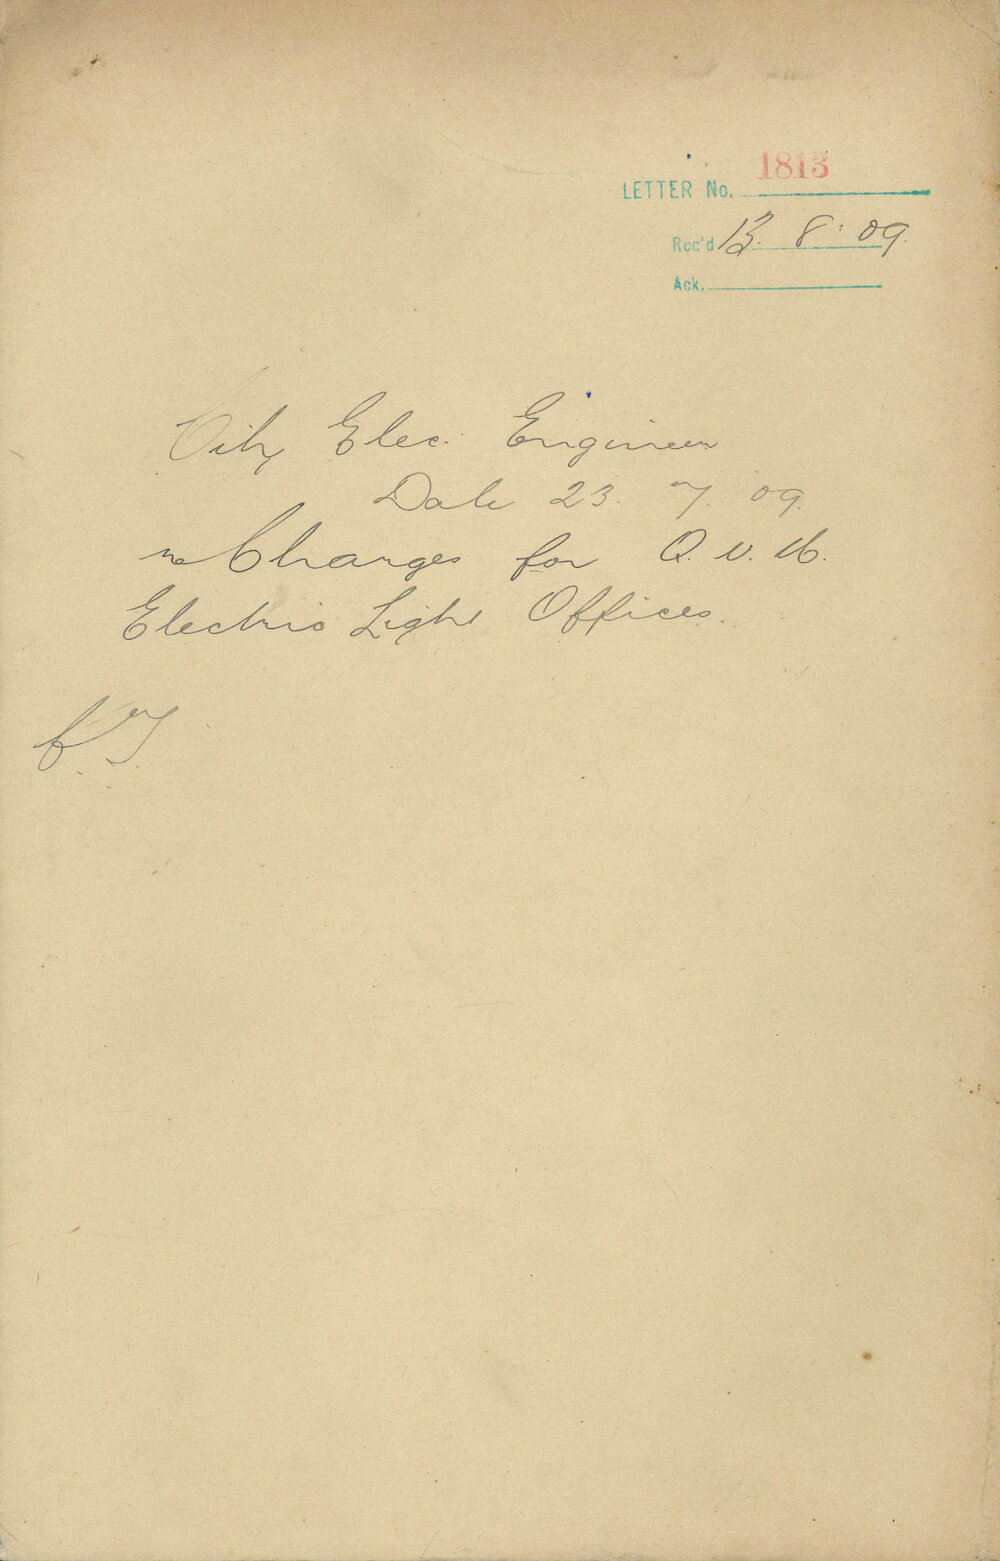 LETTER No. 1813
Rec'd 13. 8. 09.
Ack.
City Elec. Engineer
Date 23. 7. 09.
re Charges for Q. V. M.
Electric Light Offices.